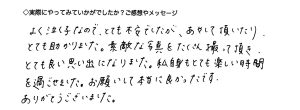 ◇実際にやってみていかがでしたか？ご感想やメッセージ
よく泣く子なので、とても不安でしたが、あやして頂いたり、
とても助かりました。素敵な写真をたくさん撮って頂き、
とても良い思い出になりました。私自身もとても楽しい時間
を過ごせました。お願いして本当に良かったです。
ありがとうございました。